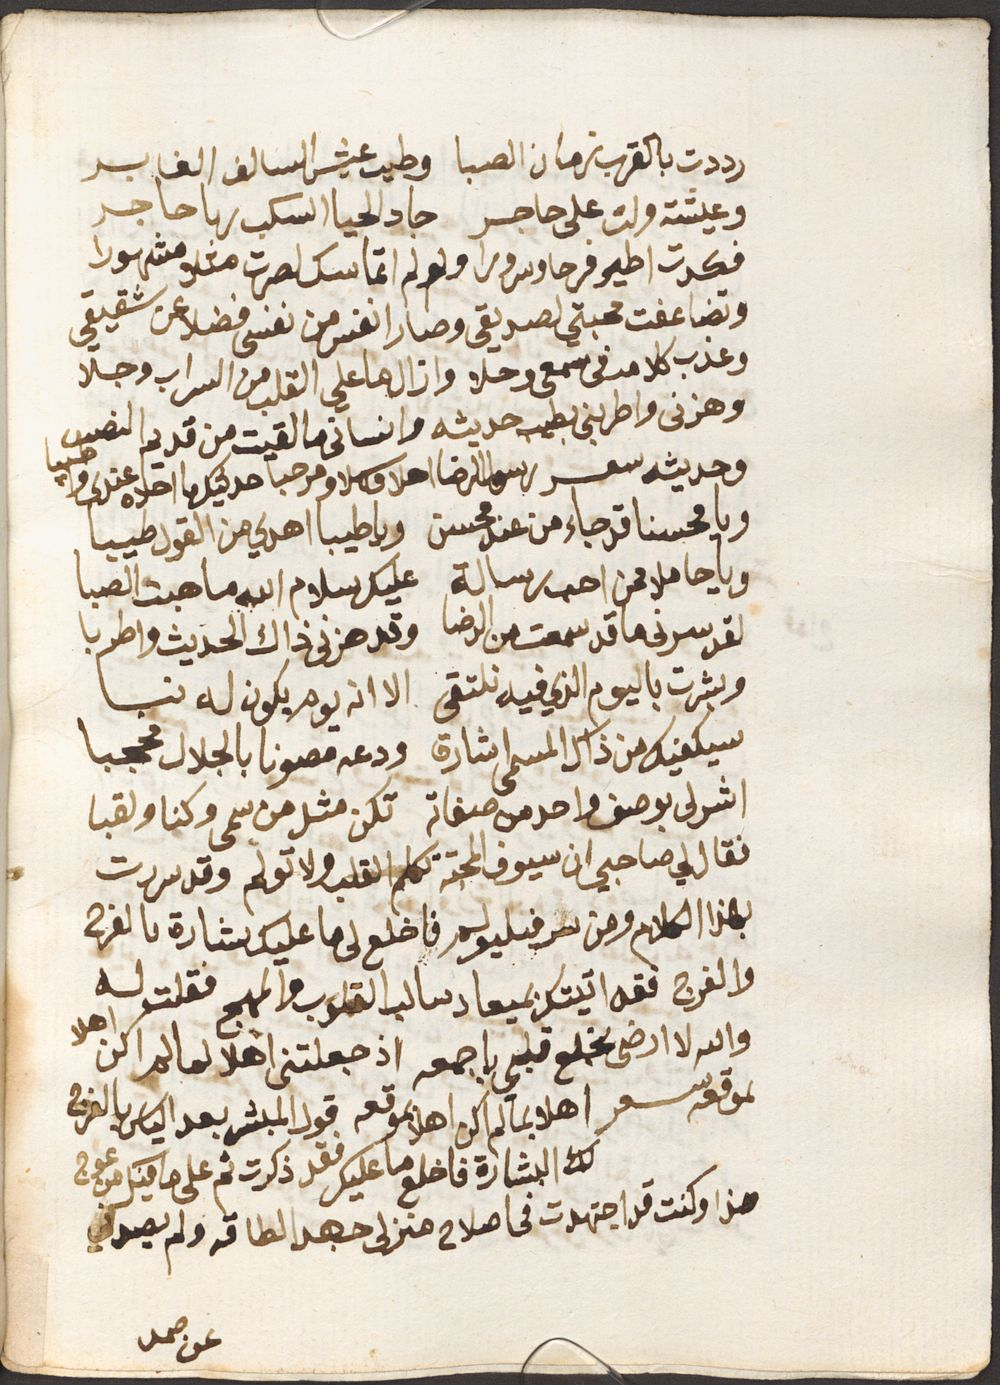 رددت بالقرب زمان الصبا وطيب عيش السالف الغابر
وعيشة ولت على حاجر جاد الحيا السكب ربا حاجر
فكدت اطير فرحا وسرورا ولو لم اتماسك لصرت مثلا مشهورا
وتضاعفت محبتي لصديقي وصار انفس من نفسي فضلا عن شقيقي
وعذب كلامه في سمعي وحلا وازال ما على القلب من السراب وجلا
وهزني واطربني بطيب حديثه وانساني ما لقيت من قديم النصب
وحديثه شعر رسول الرضا اهلا وسهلا ومرحبا حديثك ما احلاه عندي واطيبا
ويا محسنا قد جاء من عند محسن ويا طيبا اهدي من القول طيبا
ويا حاملا ممن احب رسالة عليك سلام الله ما هبت الصبا
لقد سرني ما قد سمعت من الرضا وقد هزني ذاك الحديث واطربا
وبشرت باليوم الذي فيه نلتقى الا انه يوم يكون له نبا
سيكفيك من ذاك المسمى اشارة ودعه مصونا بالجلال محجبا
اشر لي بوصف واحد من صفاته تكن مثل من سمى وكنا ولقبا
فقال لي صاحبي ان سيوف المحبة تكلم القلب ولا تولم وقد سررت
بهذا الكلام ومن سر فليولم فاخلع لي ما عليك بشارة بالفرح
والفرج فقد اتيتك بميعاد سالب القلوب والمهج فقلت له
والله لا ارضى بخلع قلبي باجمعه اذ جعلتني اهلا لما لم اكن اهلا
لموقعه شعر اهلا بما لم اكن اهلا لموقعه قول المبشر بعد الياس بالفرج
لك البشارة فاخلع ما عليك فقد ذكرت ثم على ما فيك من عوج
هذا وكنت قد اجتهدت في اصلاح منزلي جهد الطاقه ولم يصدني
عن